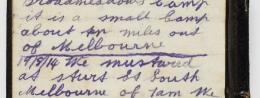 Broadmeadows Camp
it is a small Camp
about ten miles out
of Melbourne
19/8/14 We mustered
at Sturt St South
Melbourne at 9am We